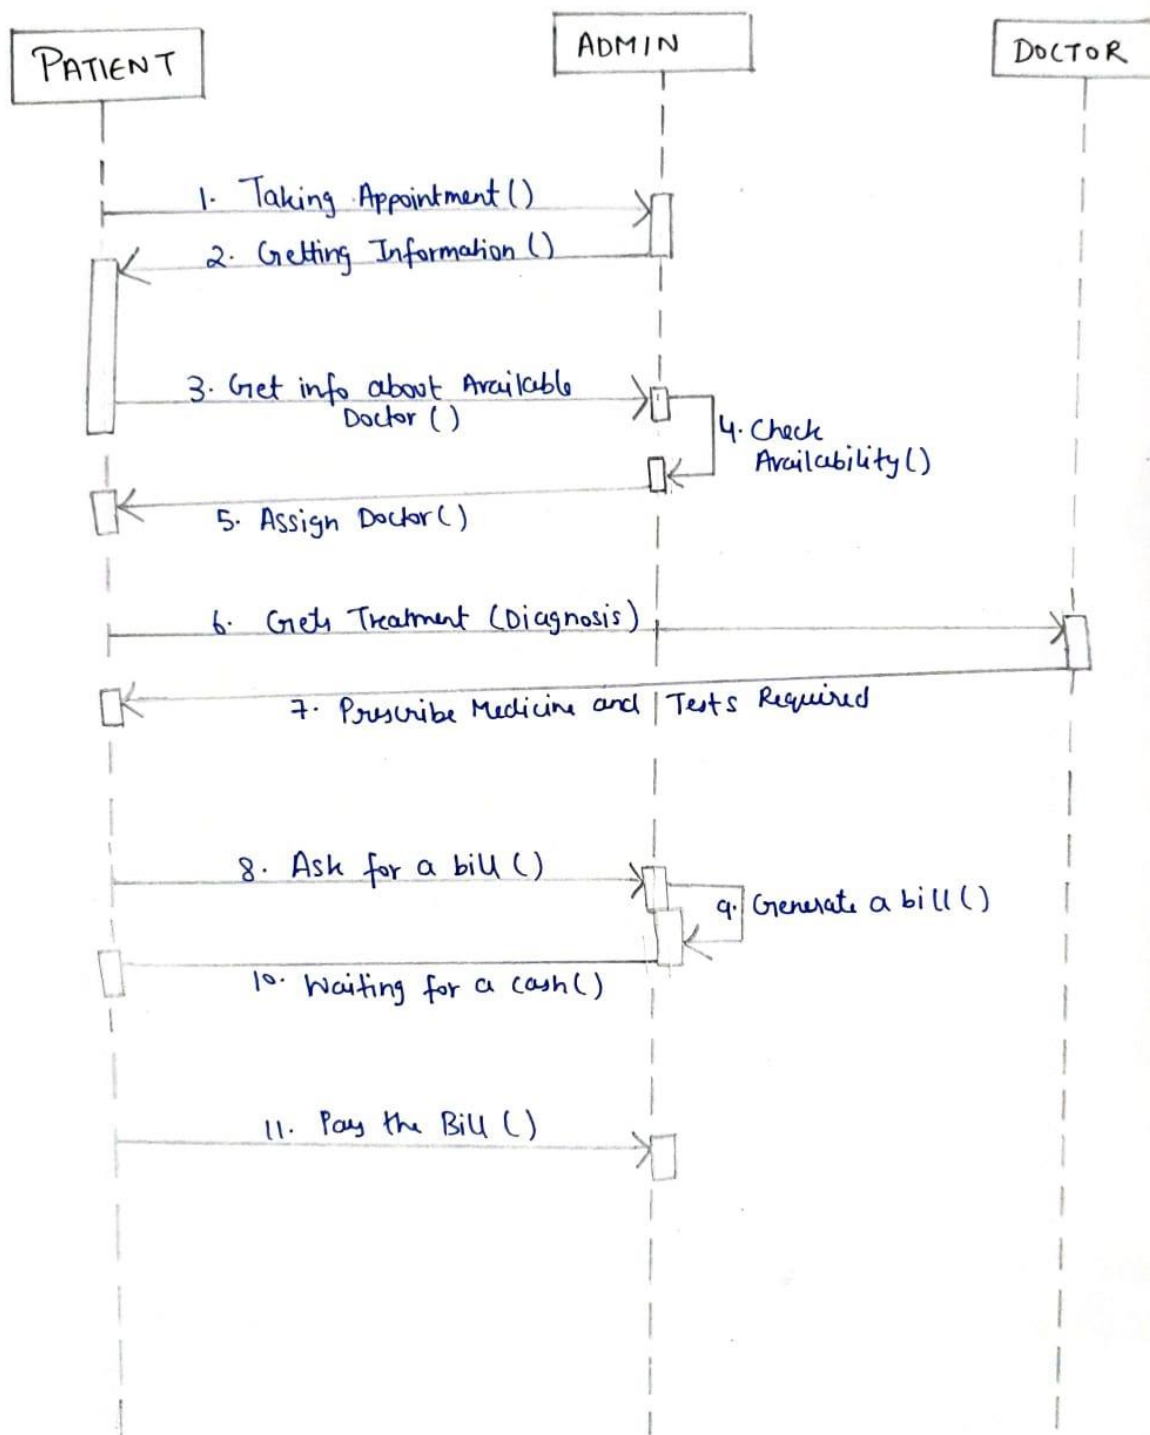 PATIENT
ADMIN
DOCTOR
1. Taking Appointment()
2. Getting Information ()
3. Get info about Available
Doctor ()
4. Check
Availability()
5. Assign Doctor()
6. Gets Treatment (Diagnosis)
7. Prescribe Medicine and Tests Required
8. Ask for a bill ()
9. Generate a bill ()
10. Waiting for a cash()
11. Pay the Bill ()